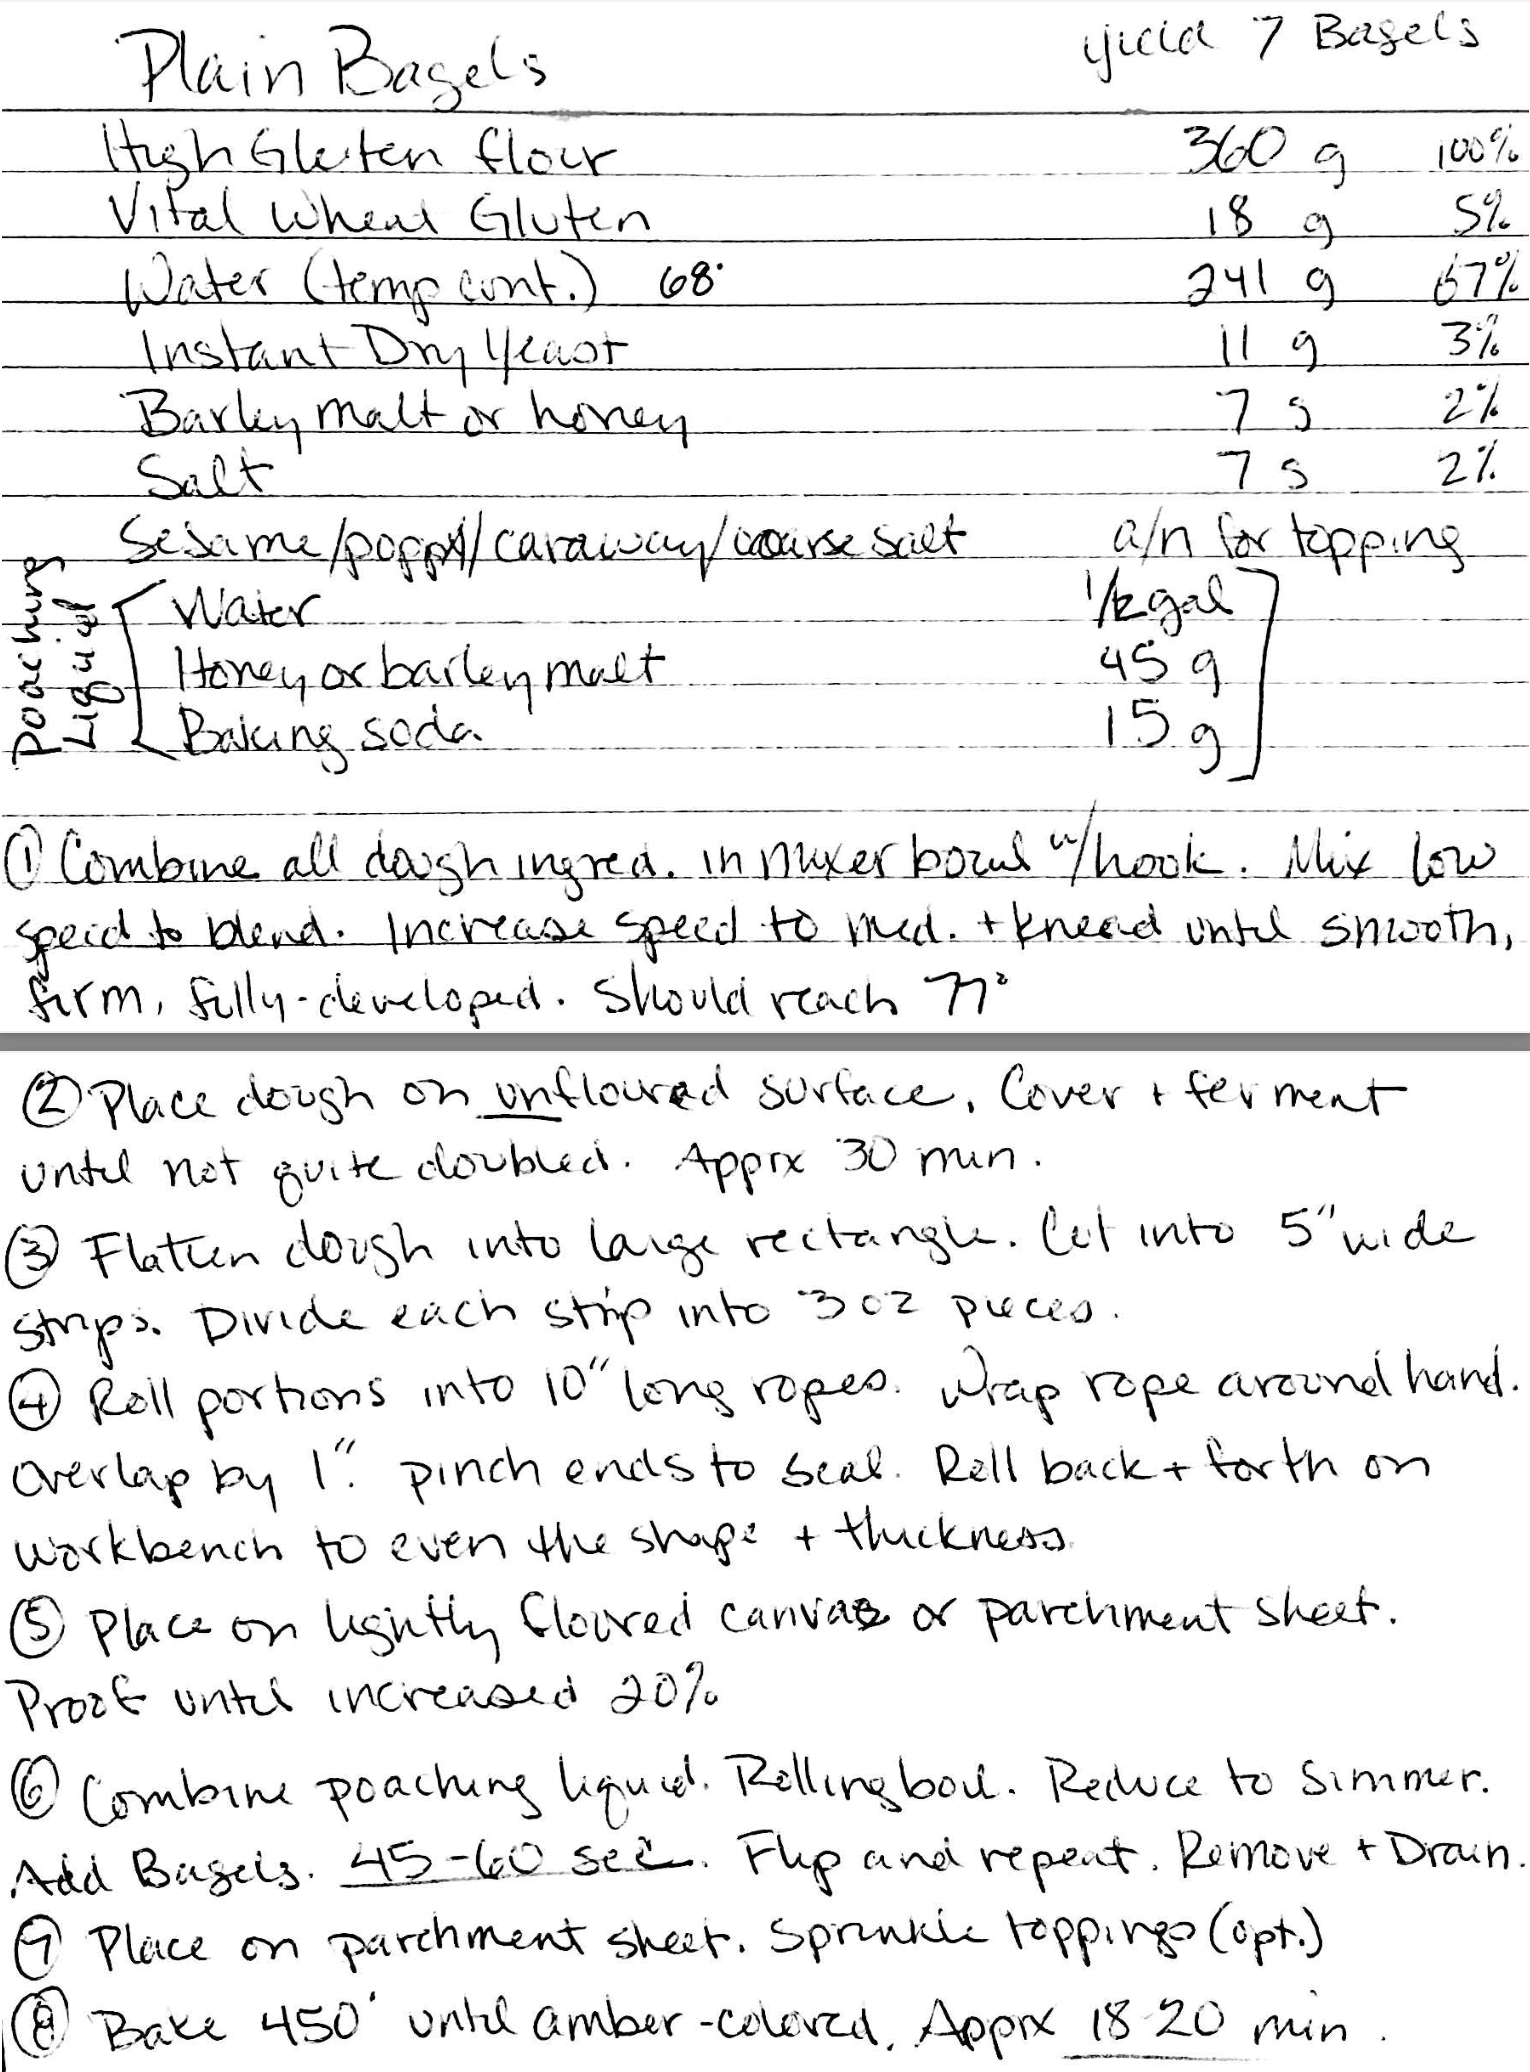 Plain Bagels yield 7 Bagels
High Gluten flour 360 g 100%
Vital Wheat Gluten 18 g 5%
Water (temp cont.) 68° 241 g 67%
Instant Dry Yeast 11 g 3%
Barley malt or honey 7 g 2%
Salt 7 g 2%
Sesame/poppy/caraway/coarse salt a/n for topping
Poaching Liquid
Water 1/2 gal
Honey or barley malt 45 g
Baking soda 15 g
① Combine all dough ingred. in mixer bowl w/hook. Mix low
speed to blend. Increase speed to med. + knead until smooth,
firm, fully-developed. Should reach 77°
② Place dough on unfloured surface. Cover + ferment
until not quite doubled. Apprx 30 min.
③ Flatten dough into large rectangle. Cut into 5" wide
strips. Divide each strip into 3 oz pieces.
④ Roll portions into 10" long ropes. Wrap rope around hand.
Overlap by 1". pinch ends to seal. Roll back + forth on
workbench to even the shape + thickness.
⑤ Place on lightly floured canvas or parchment sheet.
Proof until increased 20%
⑥ Combine poaching liquid. Rolling boil. Reduce to simmer.
Add Bagels. 45-60 sec. Flip and repeat. Remove + Drain.
⑦ Place on parchment sheet. Sprinkle toppings (opt.)
⑧ Bake 450° until amber-colored. Apprx 18-20 min.